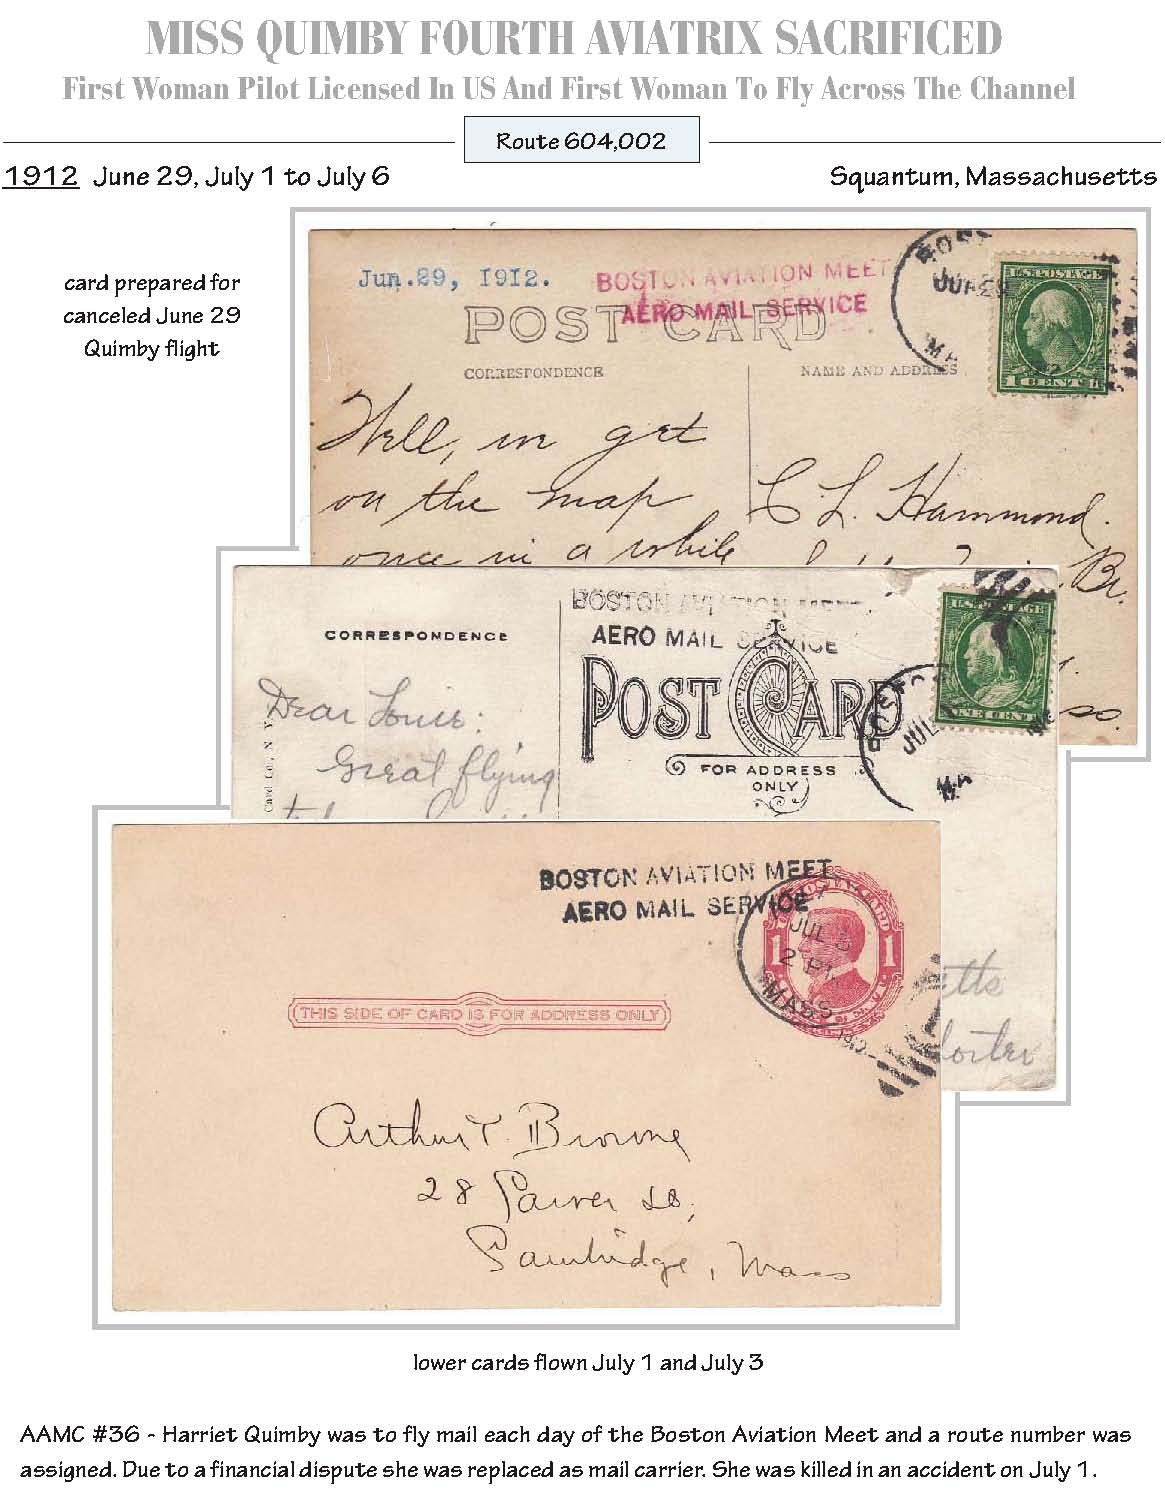 MISS QUIMBY FOURTH AVIATRIX SACRIFICED
First Woman Pilot Licensed In US And First Woman To Fly Across The Channel
Route 604,002
1912 June 29, July 1 to July 6
Squantum, Massachusetts
card prepared for
canceled June 29
Quimby flight
Jun.29, 1912.
BOSTON AVIATION MEET
AERO MAIL SERVICE
POST CARD
CORRESPONDENCE
NAME AND ADDRESS
U.S. POSTAGE
1 CENT 1
Well, in get
on the map
once in a while
C L Hammond.
Br.
BOSTON AVIATION MEET
AERO MAIL SERVICE
CORRESPONDENCE
POST CARD
FOR ADDRESS
ONLY
U.S. POSTAGE
ONE CENT
BOSTON
JUL
Card Co., N.Y.
Dear Louis:
Great flying
BOSTON AVIATION MEET
AERO MAIL SERVICE
JUL 3
2 PM
MASS
1912
1 1
THIS SIDE OF CARD IS FOR ADDRESS ONLY
Arthur T. Browne
28
Cambridge, Mass
lower cards flown July 1 and July 3
AAMC #36 - Harriet Quimby was to fly mail each day of the Boston Aviation Meet and a route number was
assigned. Due to a financial dispute she was replaced as mail carrier. She was killed in an accident on July 1.